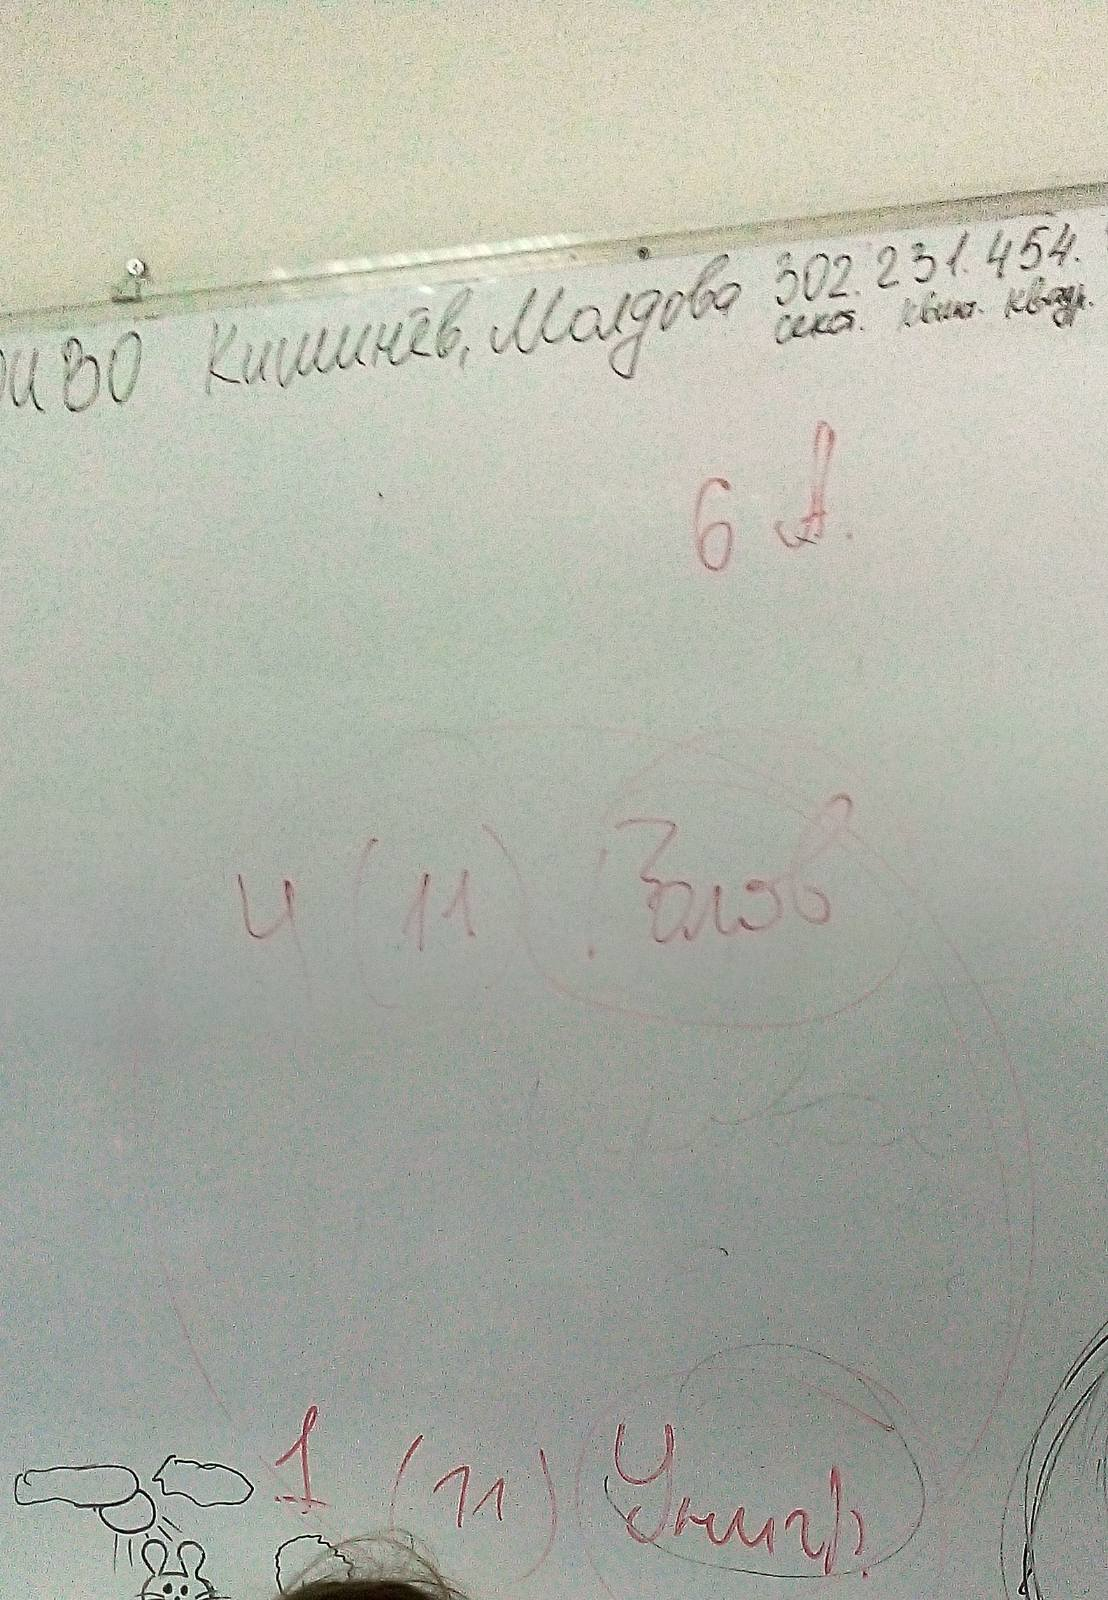 ИВО Кишинёв, Молдова 302.231.454.
секст. квинт. квадр.
6 А.
4 (11)
1 (11)